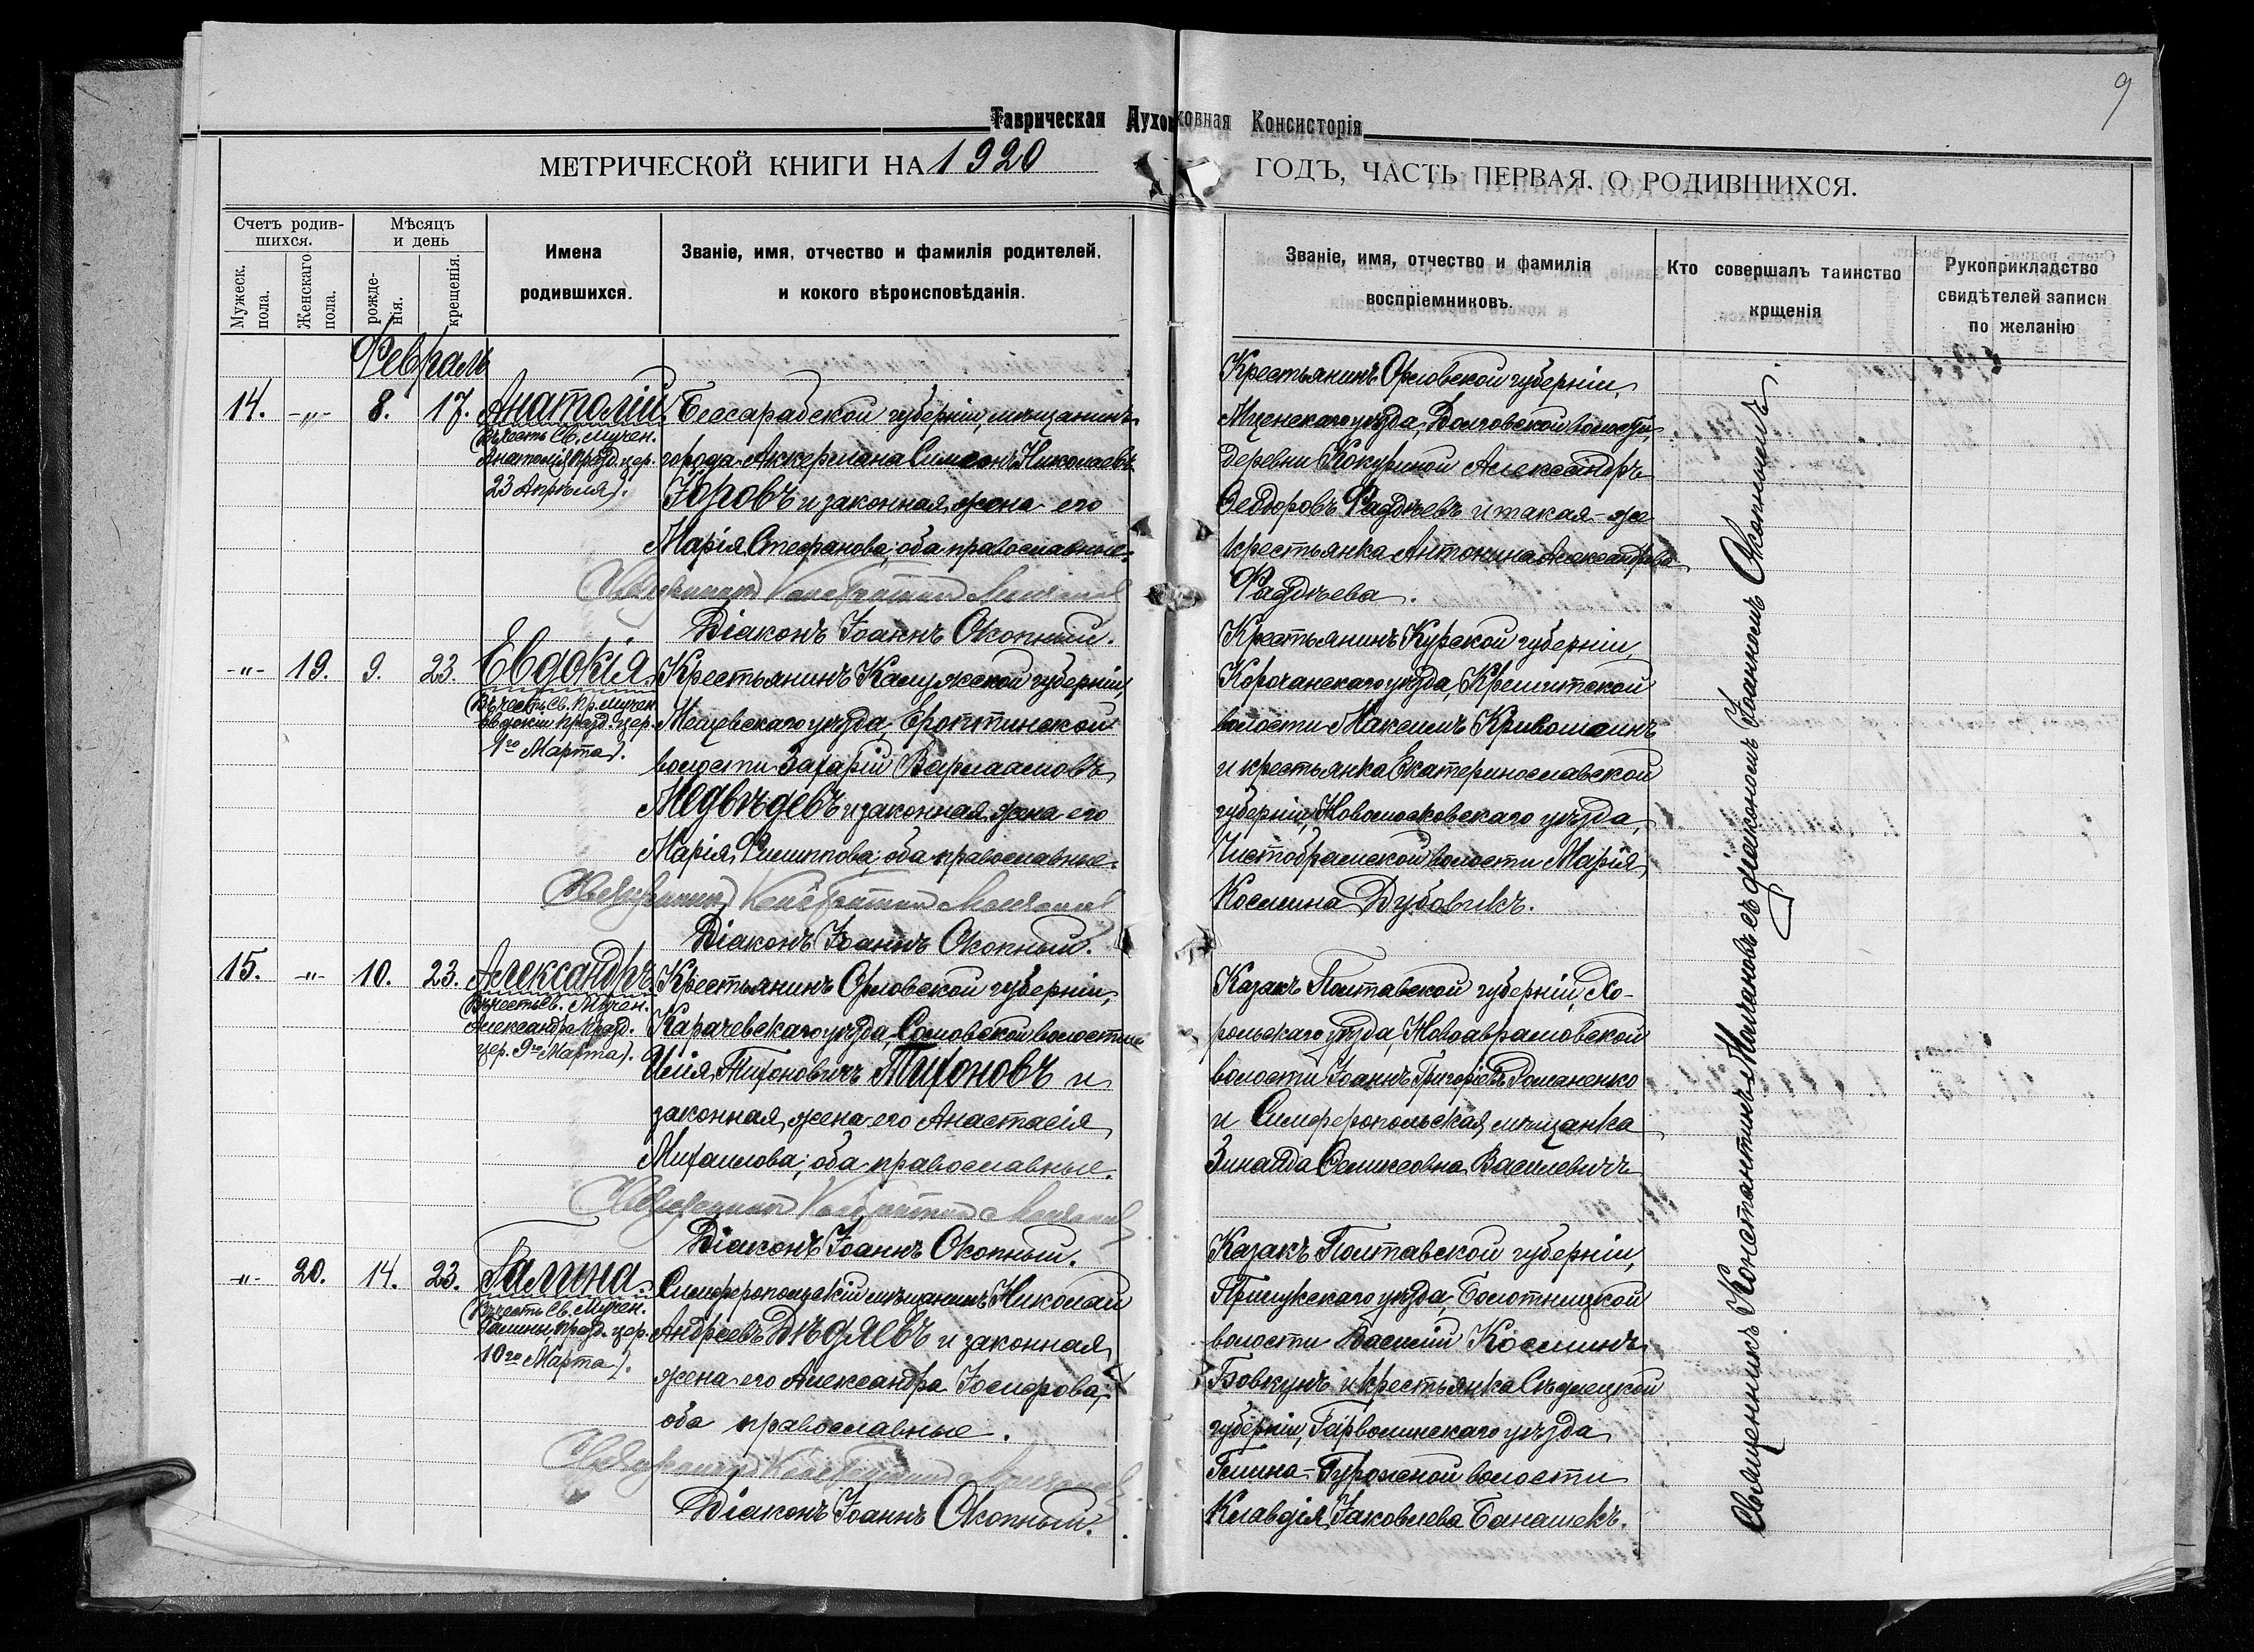 9
Таврическая Духовная Консисторія
МЕТРИЧЕСКОЙ КНИГИ НА 1920 ГОДЪ, ЧАСТЬ ПЕРВАЯ, О РОДИВШИХСЯ.
Счетъ родив-
шихся.
Мужеск.
пола.
Женскаго
пола.
Мѣсяцъ
и день
рожде-
нія.
крещенія.
Имена
родившихся.
Званіе, имя, отчество и фамилія родителей,
и кокого вѣроисповѣданія.
Званіе, имя, отчество и фамилія
воспріемниковъ.
Кто совершалъ таинство
крщенія
Рукоприкладство
свидѣтелей записи
по желанію
Февраль
14. -„- 8. 17. Анатолій.
Въ честь Св. Мучен.
Анатолія празд. цер.
23 Апрѣля).
Бессарабской губерніи, мѣщанинъ
города Аккермана Симеонъ Николаевъ
и законная жена его
Марія Стефанова, оба православные.
Священникъ Константинъ Молчановъ
Діаконъ Іоаннъ Окопный.
Крестьянинъ Орловской губерніи,
Мценскаго уѣзда, Долговской волости,
деревни Александръ
Ѳеодоровъ Фаддѣевъ и такая-же
крестьянка Антонина Александрова
Фаддѣева.
-„- 19. 9. 23. Евдокія.
Въ честь Св. Пр. Мучен.
Евдокіи празд. цер.
1го Марта).
Крестьянинъ Калужской губерніи,
Мещевскаго уѣзда,
волости Захарій Варлаамовъ
Медвѣдевъ и законная жена его
Марія Филиппова, оба православные.
Священникъ Константинъ Молчановъ
Діаконъ Іоаннъ Окопный.
Крестьянинъ Курской губерніи,
Корочанскаго уѣзда,
волости Максимъ Кривошеинъ
и крестьянка Екатеринославской
губерніи, Новомосковскаго уѣзда,
волости Марія
Космина Дубовикъ.
15. -„- 10. 23. Александръ.
Въ честь Св. Мучен.
Александра празд.
цер. 9го Марта).
Крестьянинъ Орловской губерніи,
Карачевскаго уѣзда, волости
Илія Тихоновичъ Тихоновъ и
законная жена его Анастасія
Михаилова, оба православные.
Священникъ Константинъ Молчановъ
Діаконъ Іоаннъ Окопный.
Казакъ Полтавской губерніи, Хо-
рольскаго уѣзда, Новоаврамовской
волости Іоаннъ Григоріевъ Романенко
и Симферопольская мѣщанка
Зинаида Василевичъ
-„- 20. 14. 23. Галина.
Въ честь Св. Мучен.
Галины, празд. цер.
10го Марта).
Симферопольскій мѣщанинъ Николай
Андреевъ Дѣдяевъ и законная
жена его Александра Іосифова,
оба православные.
Священникъ Константинъ Молчановъ
Діаконъ Іоаннъ Окопный.
Казакъ Полтавской губерніи,
Прилукскаго уѣзда, Болотницкой
волости Василій Косминъ
Бовкунъ и крестьянка Сѣдлецкой
губерніи, Гарволинскаго уѣзда
волости
Клавдія Іаковлева Банашекъ.
Священникъ Константинъ Молчановъ съ діакономъ Іоанномъ Окопнымъ.